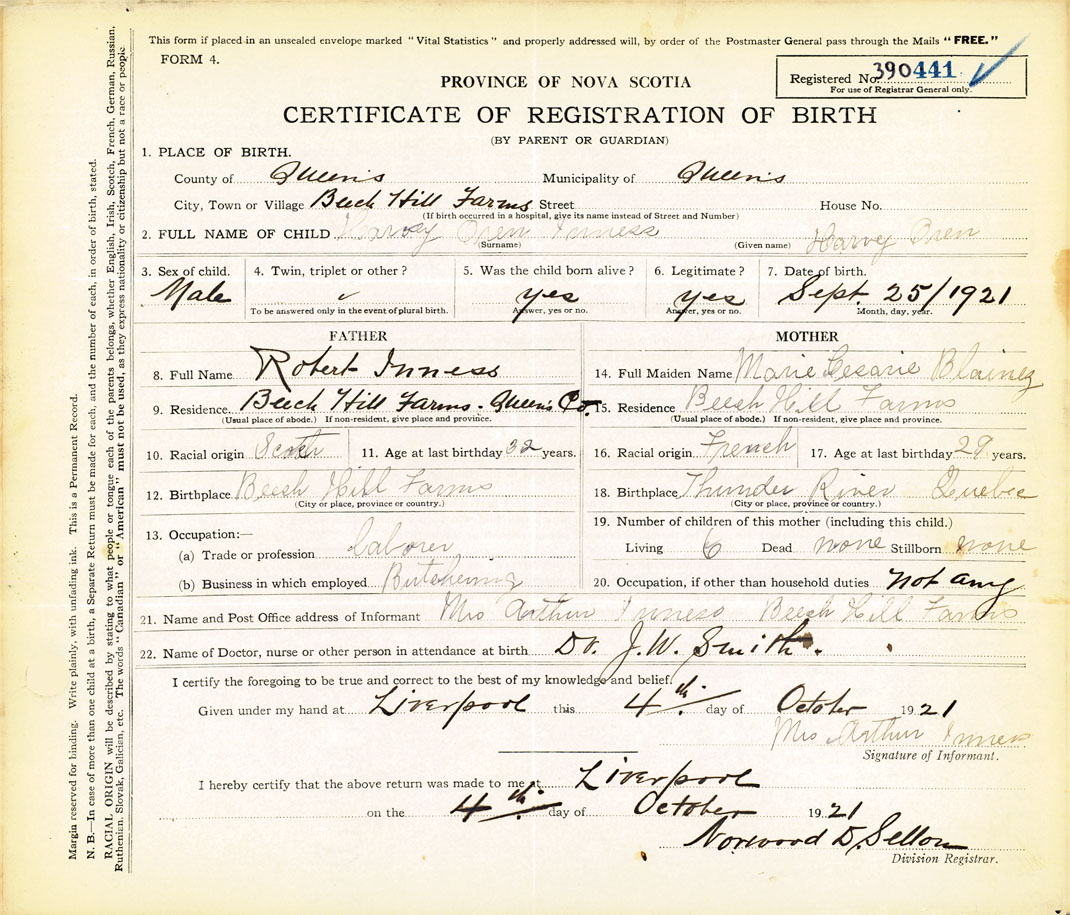 This form if placed in an unsealed envelope marked "Vital Statistics" and properly addressed will, by order of the Postmaster General pass through the Mails "FREE."
FORM 4.
Registered No. 390441
For use of Registrar General only.
PROVINCE OF NOVA SCOTIA
CERTIFICATE OF REGISTRATION OF BIRTH
(BY PARENT OR GUARDIAN)
1. PLACE OF BIRTH.
County of Queens Municipality of Queens
City, Town or Village Beech Hill Farms Street House No.
(If birth occurred in a hospital, give its name instead of Street and Number)
2. FULL NAME OF CHILD Harvey Oren Inness Harvey Oren
(Surname) (Given name)
3. Sex of child. 4. Twin, triplet or other? 5. Was the child born alive? 6. Legitimate? 7. Date of birth.
Male ✓ yes yes Sept. 25/1921
To be answered only in the event of plural birth. Answer, yes or no. Answer, yes or no. Month, day, year.
FATHER
8. Full Name Robert Inness
9. Residence Beech Hill Farms. Queens Co.
(Usual place of abode.) If non-resident, give place and province.
10. Racial origin Scotch 11. Age at last birthday 32 years.
12. Birthplace Beech Hill Farms
(City or place, province or country.)
13. Occupation:—
(a) Trade or profession Laborer
(b) Business in which employed Butchering
MOTHER
14. Full Maiden Name Marie Blainez
15. Residence Beech Hill Farms
(Usual place of abode.) If non-resident, give place and province.
16. Racial origin French 17. Age at last birthday 29 years.
18. Birthplace Thunder River Quebec
(City or place, province or country.)
19. Number of children of this mother (including this child.)
Living 6 Dead none Stillborn none
20. Occupation, if other than household duties not any
21. Name and Post Office address of Informant Mrs Arthur Inness Beech Hill Farms
22. Name of Doctor, nurse or other person in attendance at birth. Dr. J.W. Smith.
I certify the foregoing to be true and correct to the best of my knowledge and belief.
Given under my hand at Liverpool this 4th. day of October 1921
Mrs Arthur Inness
Signature of Informant.
I hereby certify that the above return was made to me at Liverpool
on the 4th day of October 1921
Norwood D. Sellon
Division Registrar.
Margin reserved for binding. Write plainly, with unfading ink. This is a Permanent Record.
N. B.—In case of more than one child at a birth, a Separate Return must be made for each, and the number of each, in order of birth, stated.
RACIAL ORIGIN will be described by stating to what people or tongue each of the parents belongs, whether English, Irish, Scotch, French, German, Russian,
Ruthenian, Slovak, Galician, etc. The words "Canadian" or "American" must not be used, as they express nationality or citizenship but not a race or people